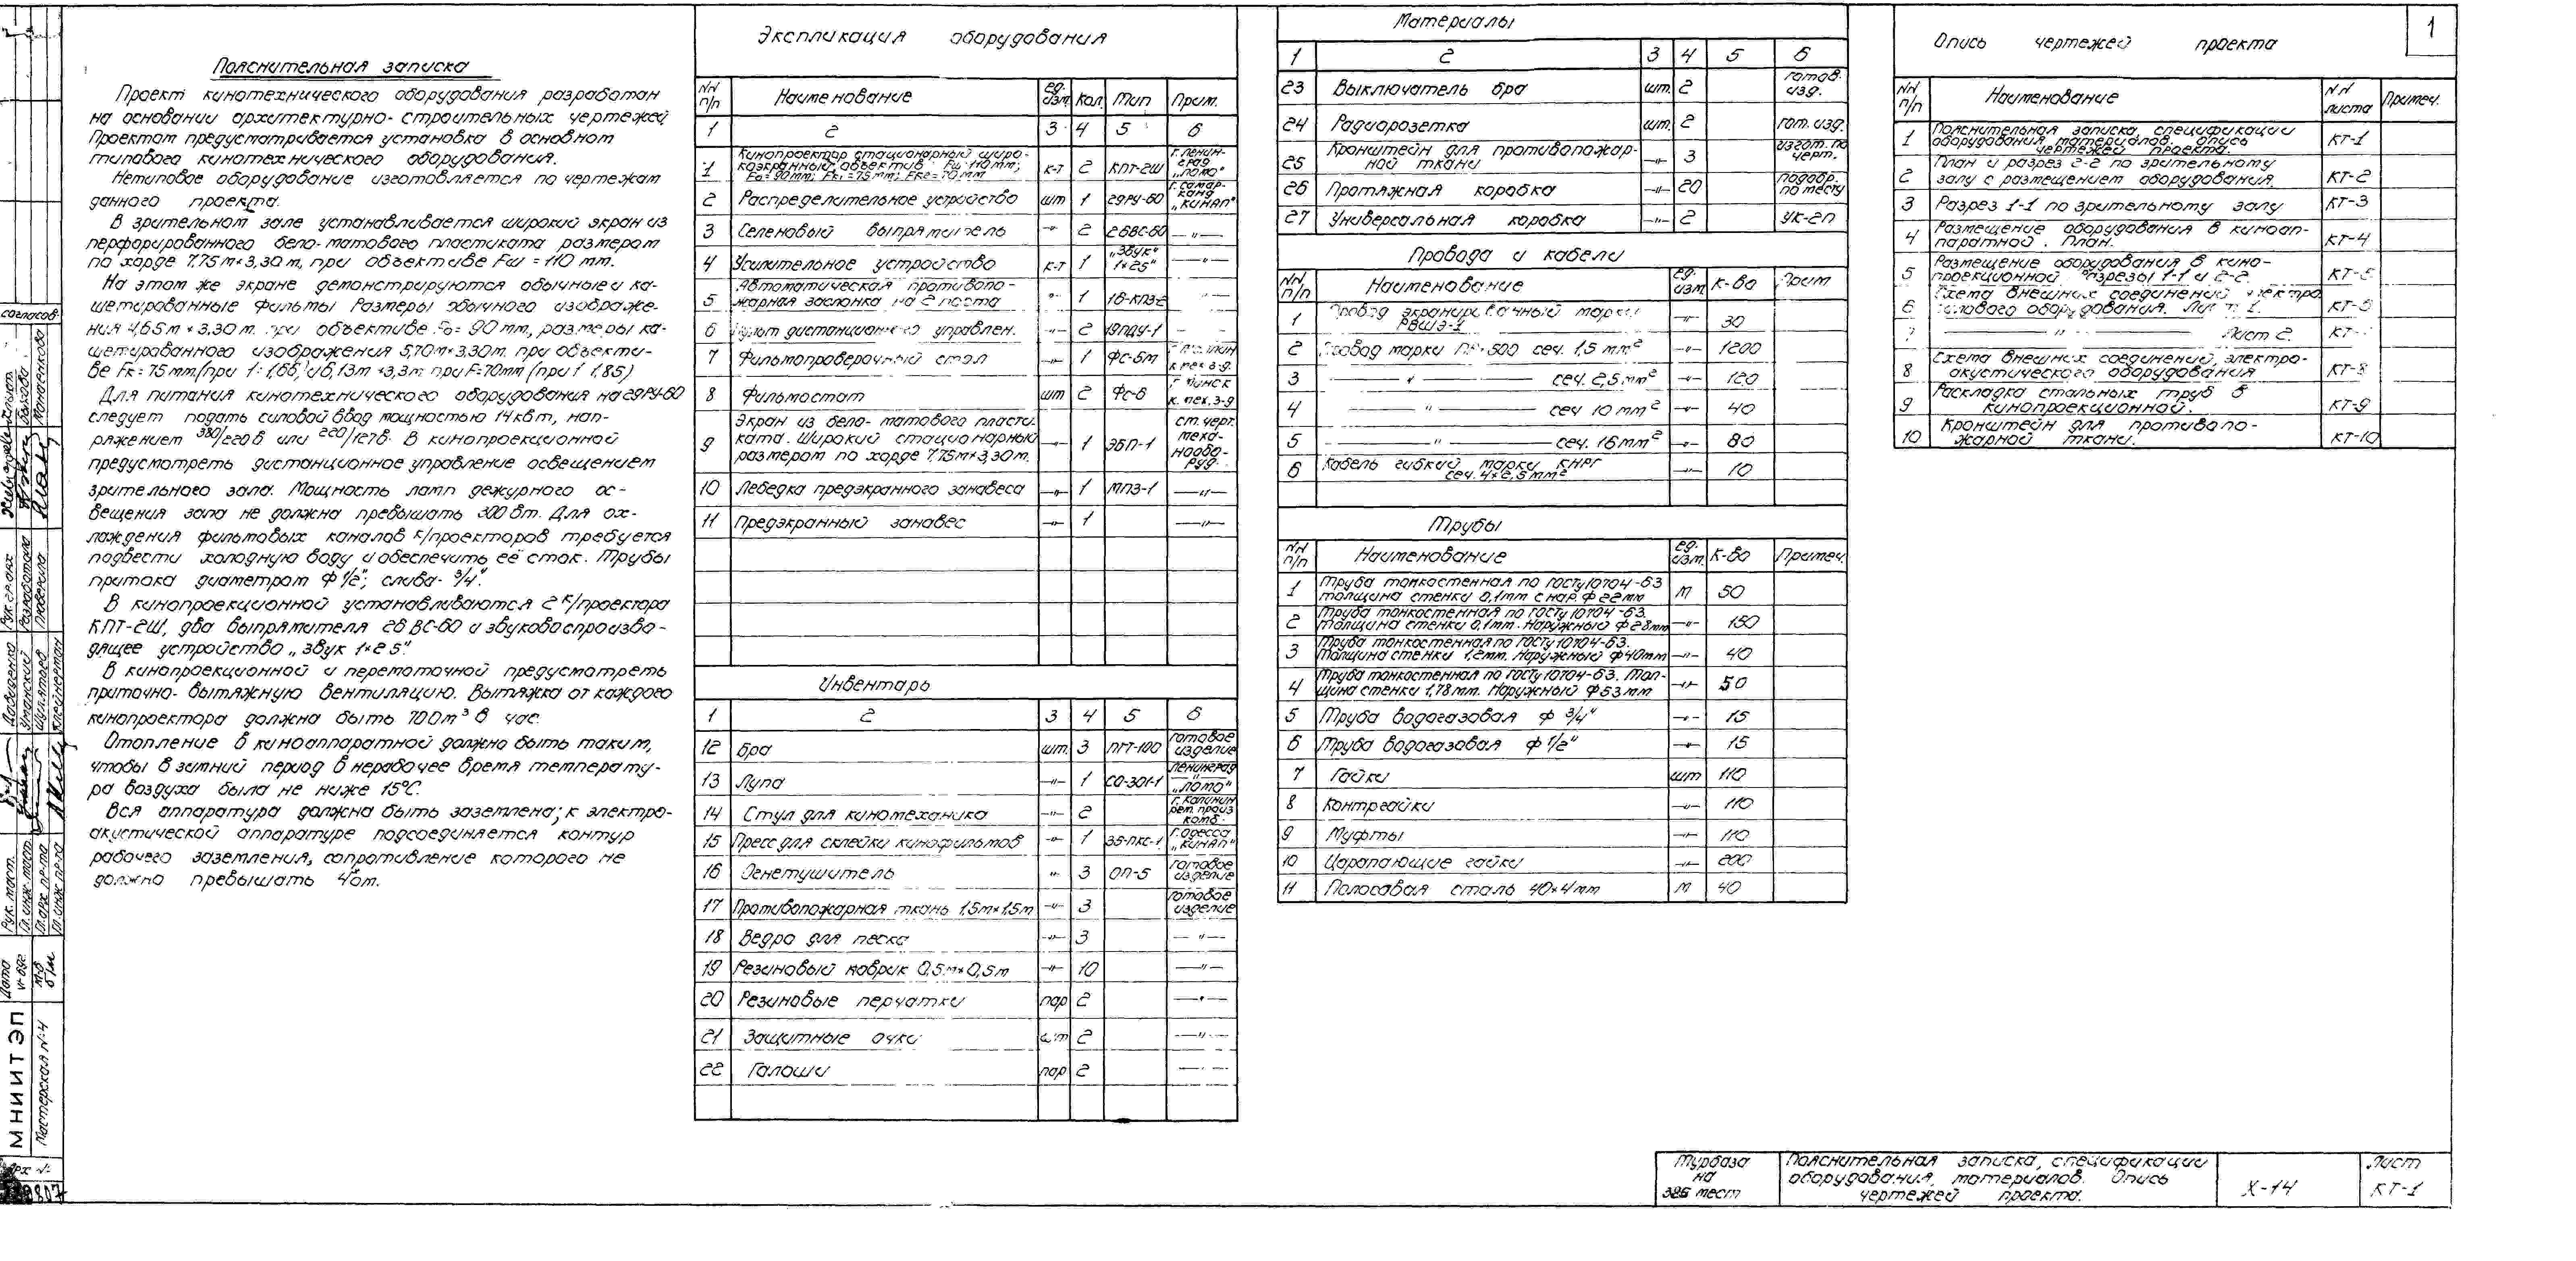 Пояснительная записка
Проект кинотехнического оборудования разработан
на основании архитектурно-строительных чертежей
Проектом предусматривается установка в основном
типового кинотехнического оборудования.
Нетиповое оборудование изготовляется по чертежам
данного проекта.
В зрительном зале устанавливается широкий экран из
перфорированного бело-матового пластиката размером
по хорде 7,75м×3,30м, при объективе Fш = 110 мм.
На этом же экране демонстрируются обычные и ка-
шетированные фильмы Размеры обычного изображе-
ния 4,65м × 3,30м. при объективе Fо = 90мм, размеры ка-
шетированного изображения 5,70м×3,30м. при объекти-
ве Fк = 75мм,(при 1:1,66) и 6,13м ×3,3м при F=70мм (при 1 1,85)
Для питания кинотехнического оборудования на 29РУ-60
следует подать силовой ввод мощностью 14квт, нап-
ряжением 380/220в или 220/127в. В кинопроекционной
предусмотреть дистанционное управление освещением
зрительного зала. Мощность ламп дежурного ос-
вещения зала не должна превышать 300вт. Для ох-
лаждения фильмовых каналов к/проекторов требуется
подвести холодную воду и обеспечить её сток. Трубы
притока диаметром ф 1/2"; слива- 3/4".
В кинопроекционной устанавливаются 2 к/проектора
КПТ-2Ш, два выпрямителя 26 ВС-60 и звуковоспроизво-
дящее устройство „Звук 1×25"
В кинопроекционной и перемоточной предусмотреть
приточно-вытяжную вентиляцию. Вытяжка от каждого
кинопроектора должна быть 700м³ в час.
Отопление в киноаппаратной должно быть таким,
чтобы в зимний период в нерабочее время температу-
ра воздуха была не ниже 15°С.
Вся аппаратура должна быть заземлена; к электро-
акустической аппаратуре подсоединяется контур
рабочего заземления, сопротивление которого не
должно превышать 4ом.
Экспликация оборудования
NN п/п Наименование ед. изм. Кол. Тип Прим.
1 2 3 4 5 6
1 Кинопроектор стационарный широ-
коэкранный, объектив: Fш=110мм;
Fо=90мм; Fк1=75мм; Fк2=70мм к-т 2 КПТ-2Ш г.Ленин-
град
„ЛОМО"
2 Распределительное устройство шт 1 29РУ-60 г. Самар-
канд
„КИНАП"
3 Селеновый выпрямитель —"— 2 26ВС-60 —"—
4 Усилительное устройство к-т 1 „Звук" 1×25" —"—
5 Автоматическая противопо-
жарная заслонка на 2 поста —"— 1 —"—
6 Пульт дистанционного управлен. —"— 2 19ПДУ-1
7 Фильмопроверочный стол —"— 1 ФС-5м
8 Фильмостат шт 2 Фс-6 г. Минск
к. мех. з-д
9 Экран из бело-матового пласти-
ката. Широкий стационарный
размером по хорде 7,75м×3,30м. —"— 1 ЭБП-1 ст. черт.
меха-
нообо-
руд.
10 Лебедка предэкранного занавеса —"— 1 МПЗ-1 —"—
11 Предэкранный занавес —"— 1 —"—
Инвентарь
1 2 3 4 5 6
12 бра шт. 3 ПГТ-100 готовое
изделие
13 Лупа —"— 1 СО-301-1 Ленинград
„ЛОМО"
14 Стул для киномеханика —"— 2 г. Калинин
рем. произ
комб.
15 Пресс для склейки кинофильмов —"— 1 35-ПКС-1 г.Одесса
„КИНАП"
16 Огнетушитель —"— 3 ОП-5 готовое
изделие
17 Противопожарная ткань 1,5м×1,5м —"— 3 готовое
изделие
18 Ведра для песка —"— 3 —"—
19 Резиновый коврик 0,5м×0,5м —"— 10 —"—
20 Резиновые перчатки пар 2 —"—
21 Защитные очки шт 2 —"—
22 Галоши пар 2 —"—
Материалы
1 2 3 4 5 6
23 Выключатель бра шт. 2 готов.
изд.
24 Радиорозетка шт. 2 гот. изд.
25 Кронштейн для противопожар-
ной ткани —"— 3 изгот. по
черт.
26 Протяжная коробка —"— 20 подобр.
по месту
27 Универсальная коробка —"— 2 УК-2П
Провода и кабели
NN п/п Наименование ед. изм. К-во Прим
1 Провод экранированный марки
РВШЭ-1 —"— 30
2 Провод марки ПР-500 сеч. 1,5 мм² —"— 1200
3 —"— сеч. 2,5мм² —"— 120
4 —"— сеч 10мм² —"— 40
5 —"— сеч. 16мм² —"— 80
6 Кабель гибкий марки КНРГ
сеч. 4×2,5мм² —"— 10
Трубы
NN п/п Наименование ед. изм. К-во Примеч.
1 Труба тонкостенная по ГОСТу10704-63
толщина стенки 0,1мм с нар. ф 22мм м 50
2 Труба тонкостенная по ГОСТу 10704-63.
толщина стенки 0,1мм. Наружный ф28мм —"— 150
3 Труба тонкостенная по ГОСТу10704-63.
толщина стенки 1,2мм. Наружный ф40мм —"— 40
4 Труба тонкостенная по ГОСТу10704-63. Тол-
щина стенки 1,78мм. Наружный ф53мм —"— 50
5 Труба водогазовая ф 3/4" —"— 15
6 Труба водогазовая ф 1/2" —"— 15
7 Гайки шт 110
8 Контргайки —"— 110
9 Муфты —"— 110
10 Царапающие гайки —"— 200
11 Полосовая сталь 40×4мм м 40
1
Опись чертежей проекта
NN п/п Наименование NN листа Примеч.
1 Пояснительная записка, спецификации
оборудования, материалов, опись
чертежей проекта. КТ-1
2 План и разрез 2-2 по зрительному
залу с размещением оборудования. КТ-2
3 Разрез 1-1 по зрительному залу КТ-3
4 Размещение оборудования в киноап-
паратной. План. КТ-4
5 Размещение оборудования в кино-
проекционной Разрезы 1-1 и 2-2. КТ-5
6 Схема внешних соединений электро
силового оборудования. Лист 1. КТ-6
7 —"— Лист 2. КТ-
8 Схема внешних соединений, электро-
акустического оборудования КТ-8
9 Раскладка стальных труб в
кинопроекционной. КТ-9
10 Кронштейн для противопо-
жарной ткани. КТ-10
Турбаза
на
мест
Пояснительная записка, спецификации
оборудования, материалов. Опись
чертежей проекта.
X-14
Лист
КТ-1
согласов.
МНИИТЭП
Мастерская №4